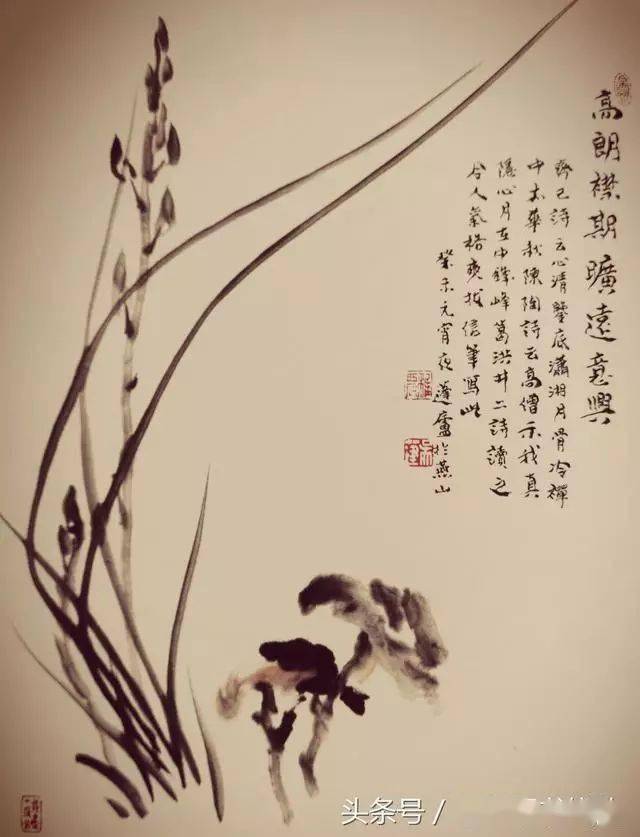 高朗襟期曠遠意興
齊己詩云心清鑒底瀟湘月骨冷禪
中太華秋陳陶詩云高僧示我真
隱心月在中峰葛洪井二詩讀之
令人氣格爽拔信筆寫此
癸未元宵夜廬於燕山
头条号 /